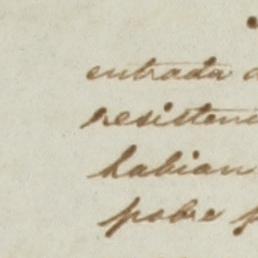 entrada
resisten
habian
pobre